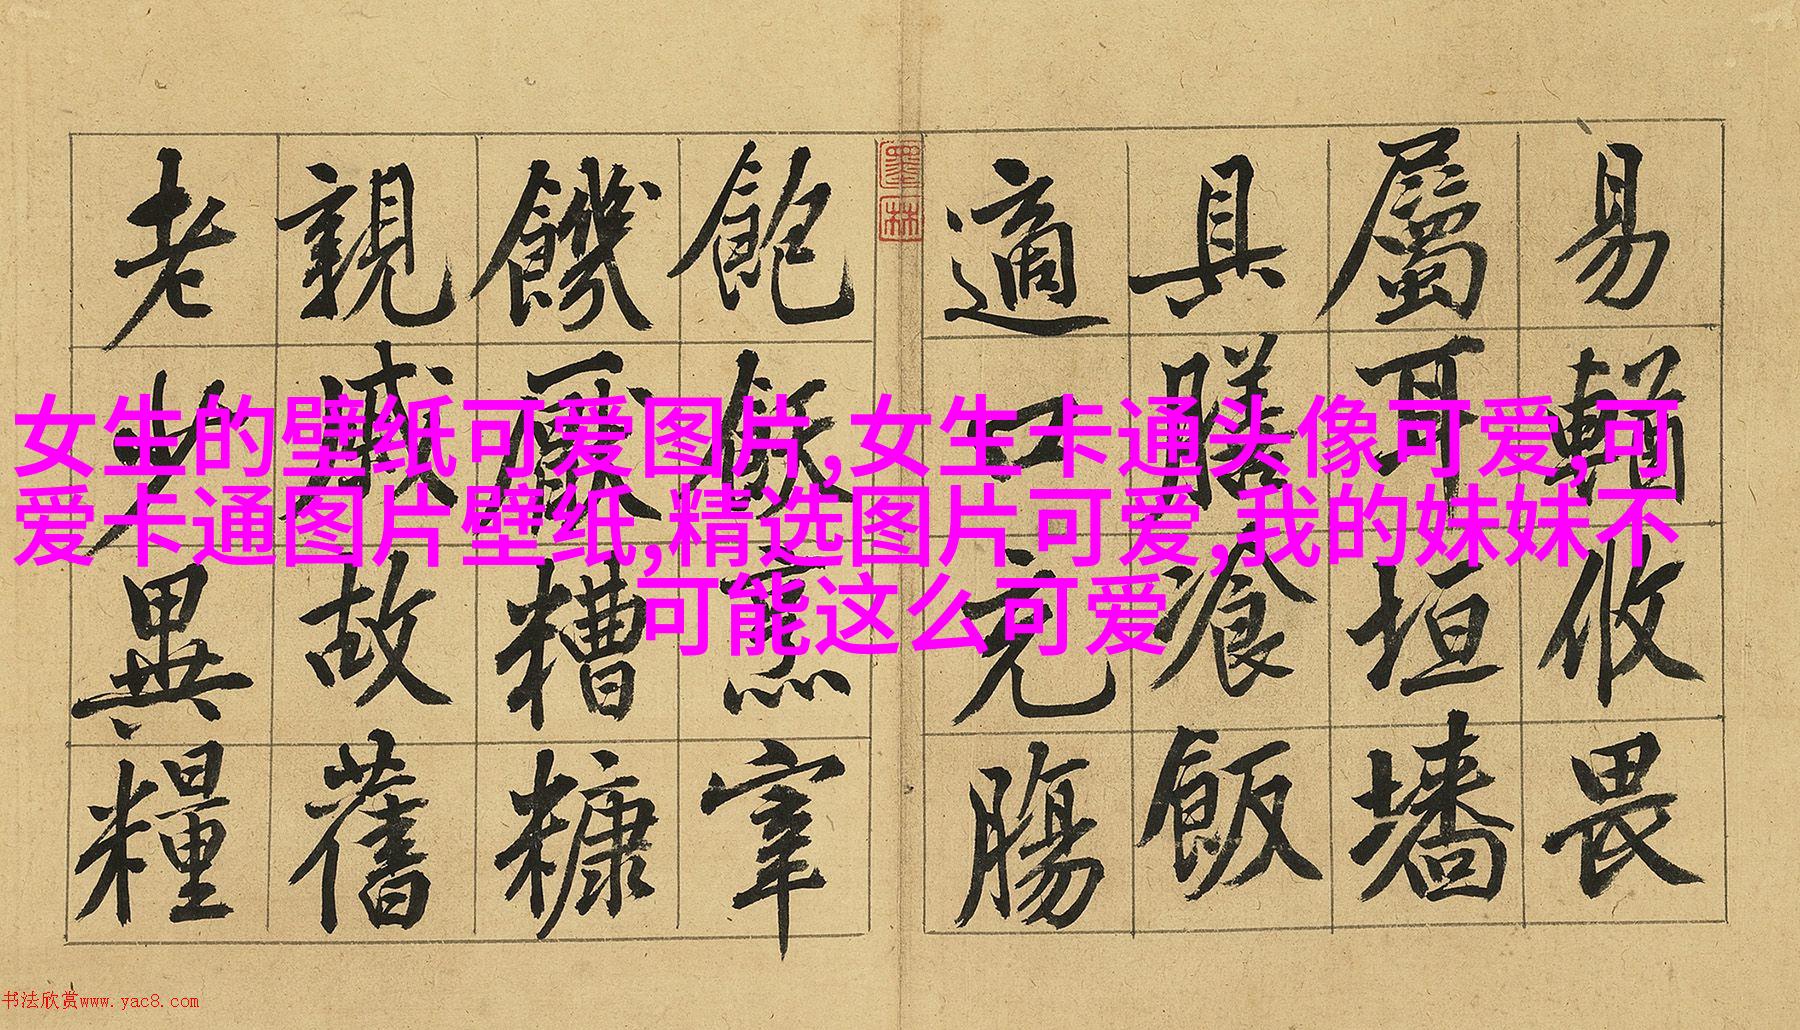 易輶攸畏
屬耳垣墻
具膳湌飯
適口充腸
墨林
飽飫烹宰
饑厭糟糠
親戚故舊
老少異糧
女生的壁纸可爱图片,女生卡通头像可爱,可
爱卡通图片壁纸,精选图片可爱,我的妹妹不
可能这么可爱
书法欣赏www.yac8.com